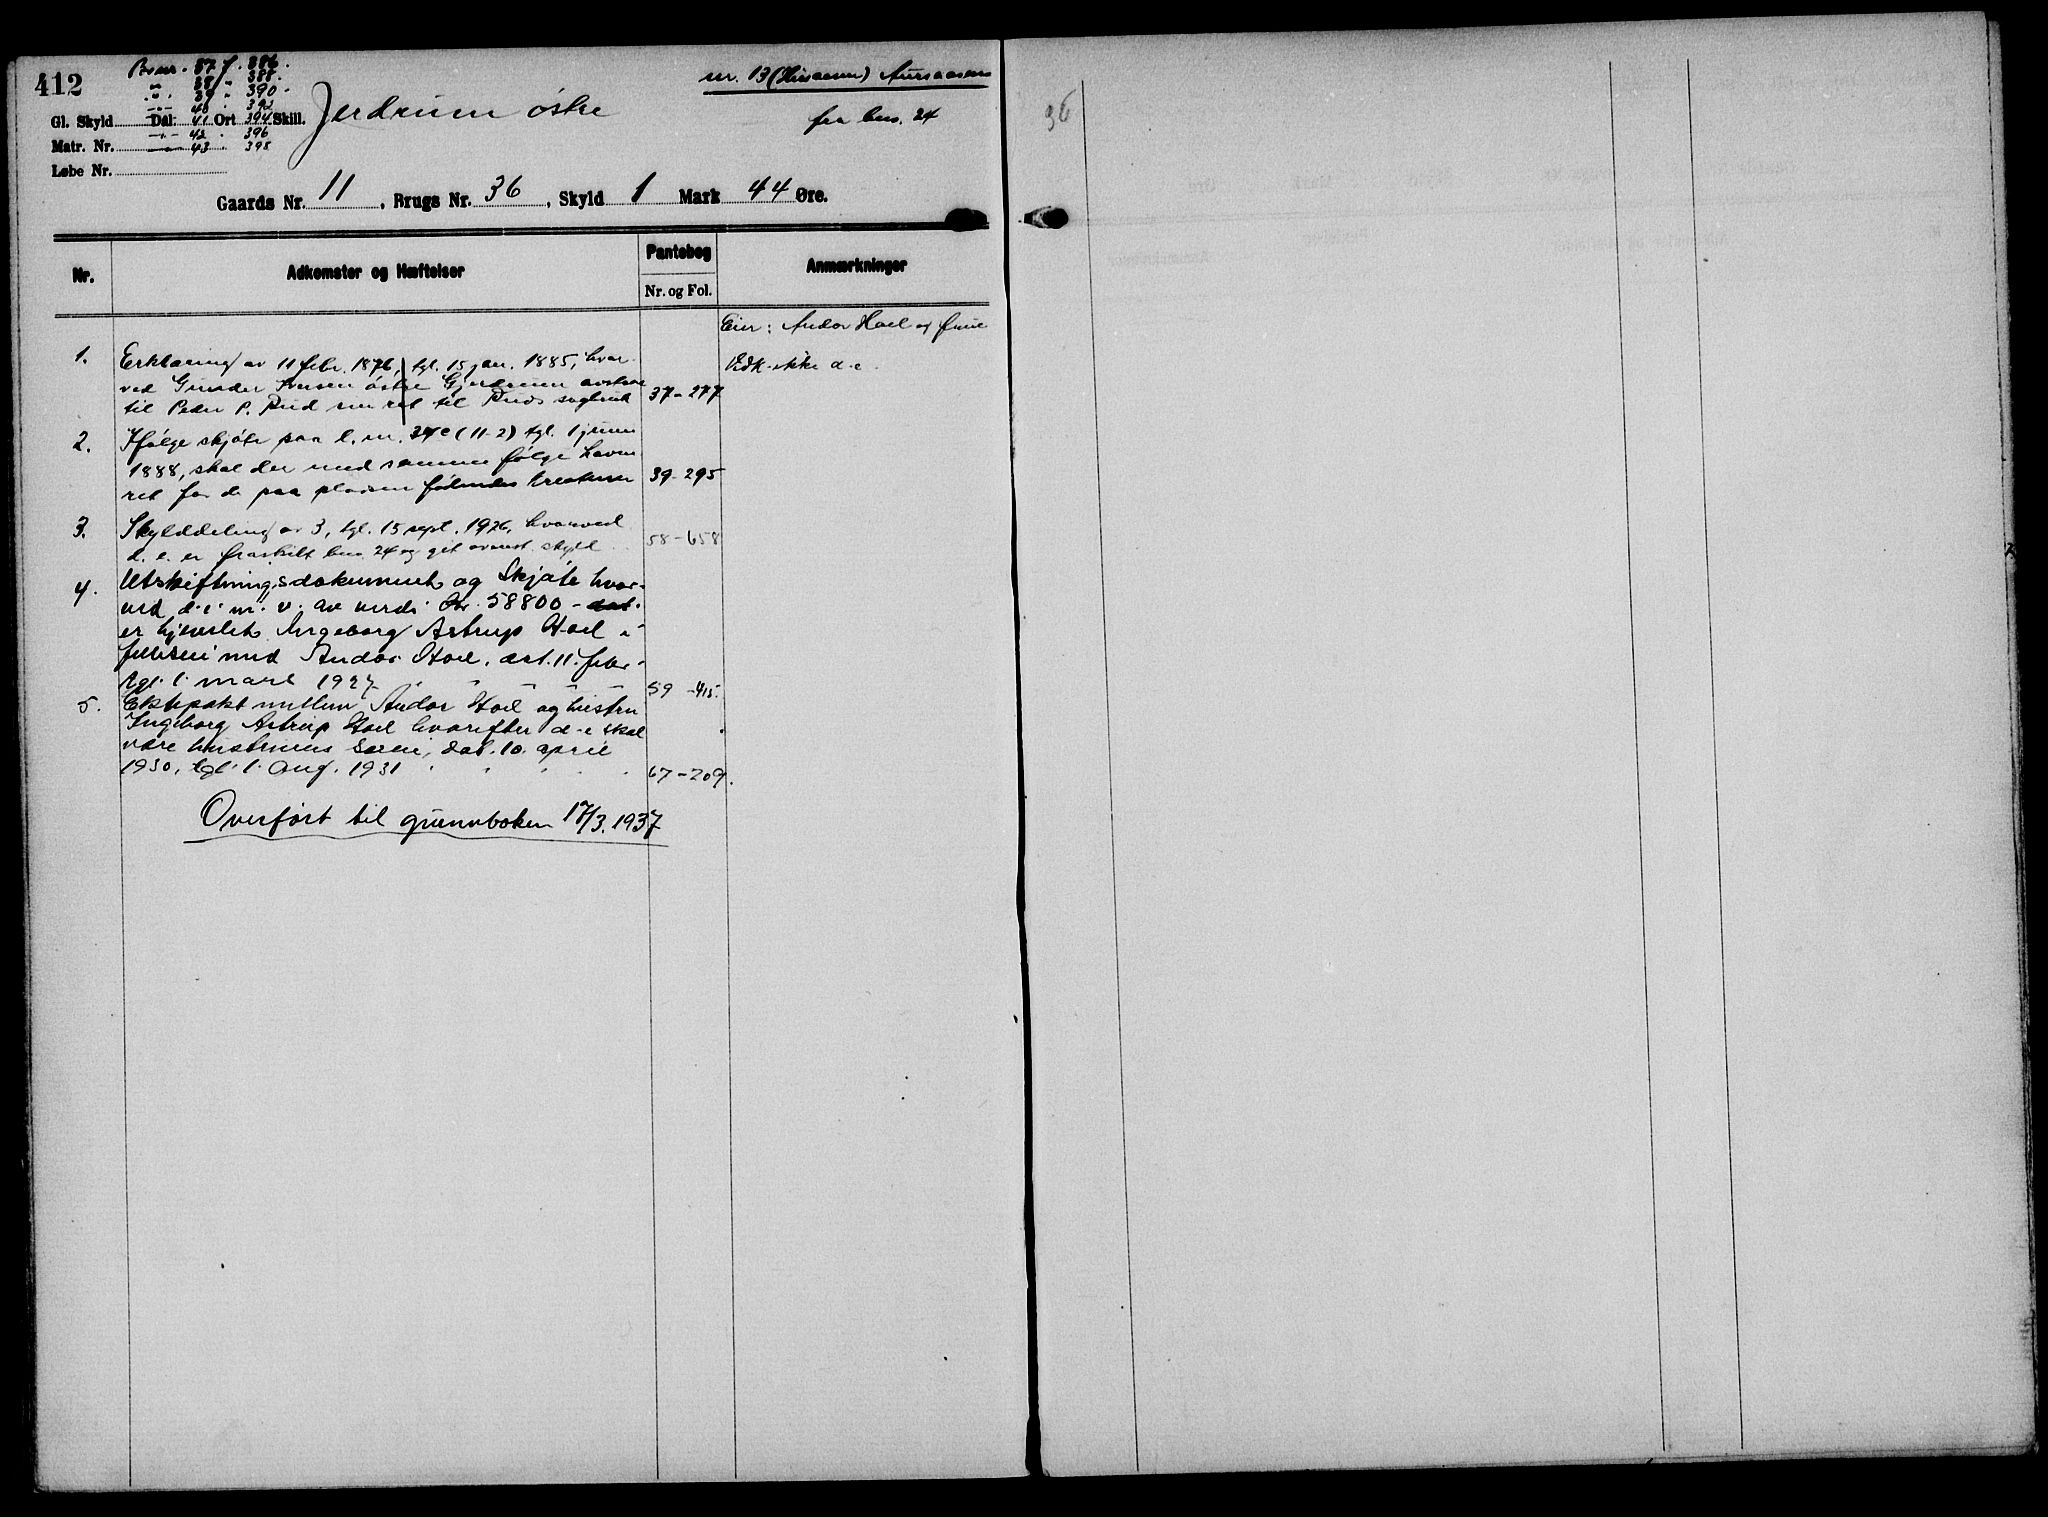 412
Bnr. 37 f. 386.
" 38 " 388.
" 39 " 390.
" 40 " 392
Gl. Skyld Dal. 41 Ort 394 Skill.
" 42 " 396
Matr. Nr. " 43 " 398
Løbe Nr.
Jerdrum østre
nr. 13 Aursaasen
fra bnr. 24
Gaards Nr. 11, Brugs Nr. 36, Skyld 1 Mark 44 Øre.
Nr.
Adkomster og Hæftelser
Pantebog
Nr. og Fol.
Anmærkninger
Eier: Andor Hoel og frue
1. Erklæring av 11 febr. 1876, tgl. 15 jan. 1885, hvor-
ved Gunder Iversen østre Gjerdrum avstaar
til Peder P. Rud sin ret til Ruds sagbruk 37-277
Vedk. ikke d.e.
2. Ifølge skjøte paa l.nr. 37c (11-2) tgl. 1 juni
1888, skal der med samme følge havne
ret for de paa pladsen fødendes kreaturer 39-295
3. Skylddeling av 3, tgl. 15 sept. 1926, hvorved
d. e. er fraskilt bnr. 24 og git ovennt. skyld 58-658
4. Utskiftningsdokument og Skjøte hvor-
ved d.e. m. v. av verdi kr. 58800 - dat.
er hjemlet Ingeborg Astrup Hoel i
felleseie med Andor Hoel, dat. 11. febr.
tgl. 1. mars 1927 59-415.
5. Ektepakt mellem Andor Hoel og hustru
Ingeborg Astrup Hoel hvorefter d-e skal
være hustruens særeie, dat. 10. april
1930, tgl. 1. aug. 1931 67-209.
Overført til grunnboken 17/3. 1937
36